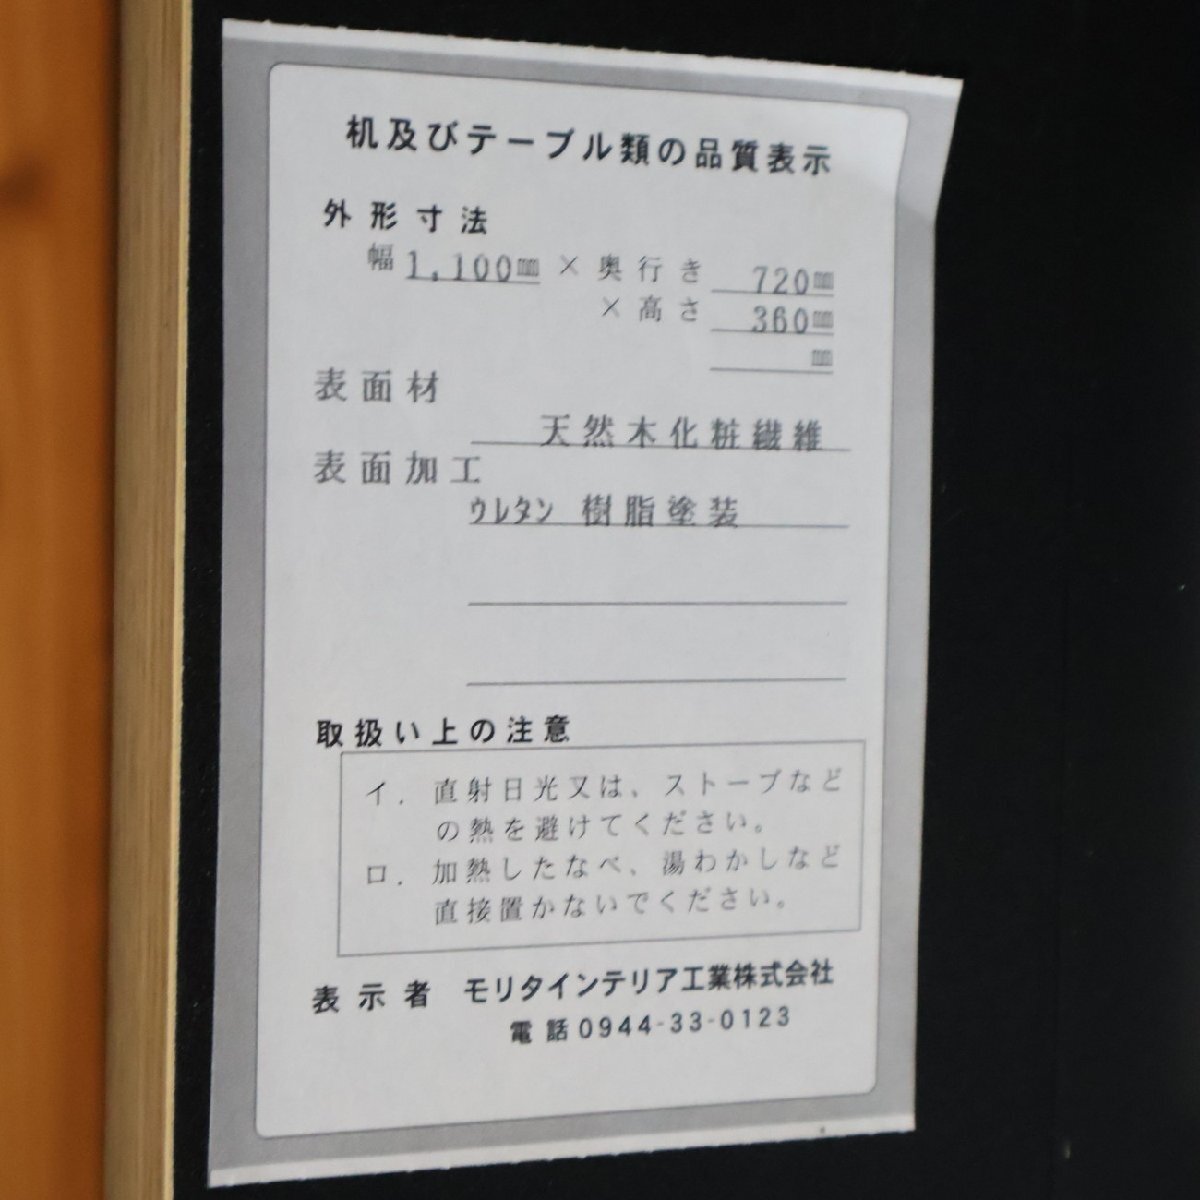 机及びテーブル類の品質表示
外形寸法
幅 1,100㎜ × 奥行き 720㎜
× 高さ 360㎜
㎜
表面材
天然木化粧繊維
表面加工
ウレタン 樹脂塗装
取扱い上の注意
イ. 直射日光又は、ストーブなど
の熱を避けてください。
ロ. 加熱したなべ、湯わかしなど
直接置かないでください。
表示者 モリタインテリア工業株式会社
電話0944-33-0123